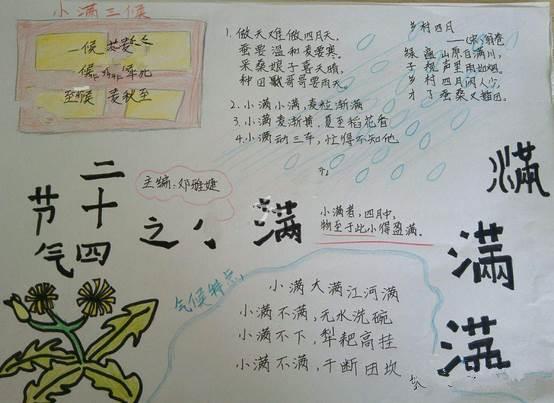 小满三候
一候苦菜秀
二候靡草死
三候麦秋至
1.做天难做四月天,
蚕要温和麦要寒。
采桑娘子喜天晴,
种田歌哥哥要雨天。
2.小满小满,麦粒渐满
3.小满麦渐黄,夏至稻花香
4.小满动三车,忙得不知他
乡村四月
——(宋)翁卷
绿遍山原白满川,
子规声里雨如烟。
乡村四月闲人少,
才了蚕桑又插田。
二十四
节气
之小满
主编:邓雅婕
小满者,四月中,
物至于此小得盈满。
满
滿
满
气候特点
小满大满江河满
小满不满,无水洗碗
小满不下,犁耙高挂
小满不满,干断田坎